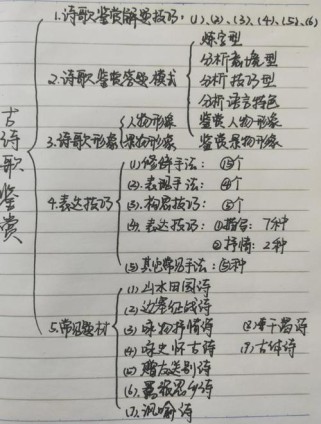 古诗歌鉴赏
1.诗歌鉴赏解题技巧:(1)、(2)、(3)、(4)、(5)、(6)
2.诗歌鉴赏答题模式
炼字型
分析意境型
分析技巧型
分析语言特色
鉴赏人物形象
鉴赏景物形象
3.诗歌形象
人物形象
景物形象
4.表达技巧
(1)修辞手法: 个
(2)、表现手法: 个
(3)、构思技巧: 个
(4)、表达技巧: ①描写: 7种
②抒情: 2种
(5)其它常见手法: 种
5.常见题材
(1)山水田园诗
(2)边塞征战诗
(3)咏物抒情诗 (8)干谒诗
(4)咏史怀古诗 (9)古体诗
(5)赠友送别诗
(6)羁旅思乡诗
(7)讽喻诗